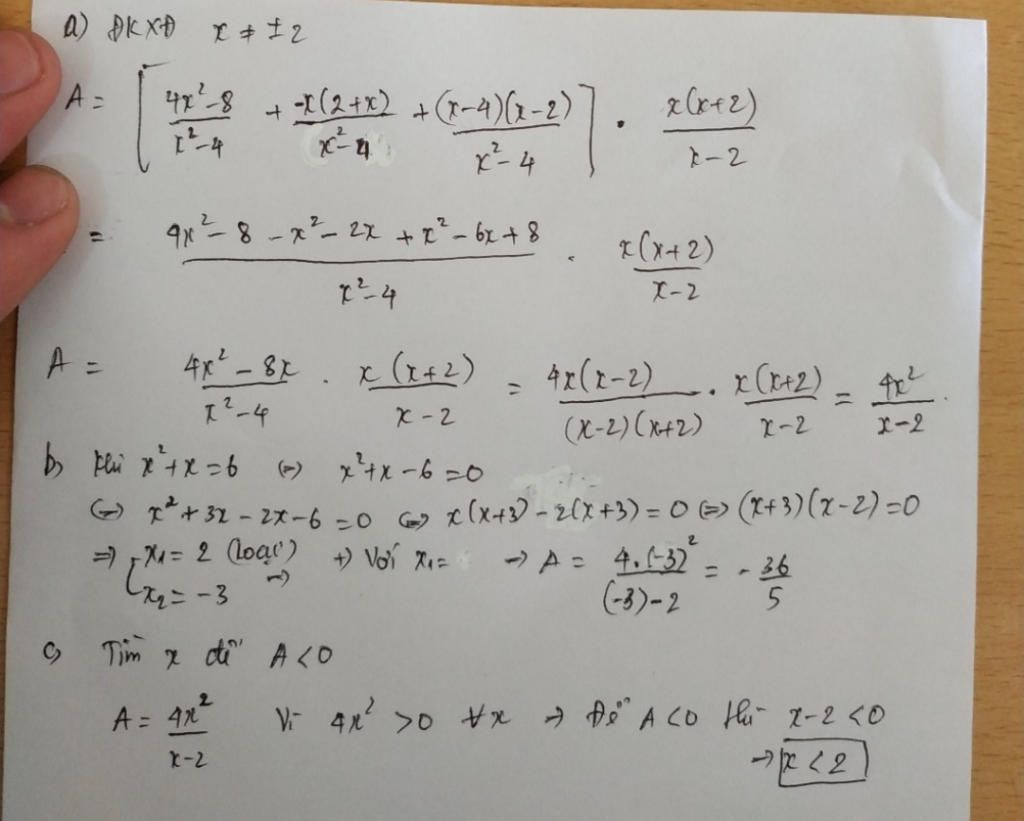 a) ĐKXĐ x ≠ ±2
A = [ (4x²-8)/(x²-4) + (-x(2+x))/(x²-4) + ((x-4)(x-2))/(x²-4) ] . (x(x+2))/(x-2)
= (4x²-8-x²-2x+x²-6x+8)/(x²-4) . (x(x+2))/(x-2)
A = (4x²-8x)/(x²-4) . (x(x+2))/(x-2) = (4x(x-2))/((x-2)(x+2)) . (x(x+2))/(x-2) = (4x²)/(x-2) .
b) khi x²+x=6 (=) x²+x-6=0
(=) x²+3x-2x-6=0 (=) x(x+3)-2(x+3)=0 (=) (x+3)(x-2)=0
=> [ x1 = 2 (loại) +) Với x1= → A = (4.(-3)²)/((-3)-2) = -36/5
x2 = -3 →
c) Tìm x để A<0
A = (4x²)/(x-2) Vì 4x² >0 ∀x → Để A<0 thì x-2<0
→ x<2